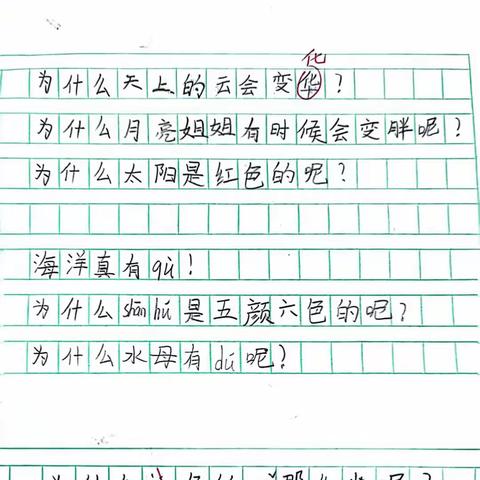 化
为什么天上的云会变华？
为什么月亮姐姐有时候会变胖呢？
为什么太阳是红色的呢？
海洋真有qù！
为什么shān hú是五颜六色的呢？
为什么水母有dú呢？